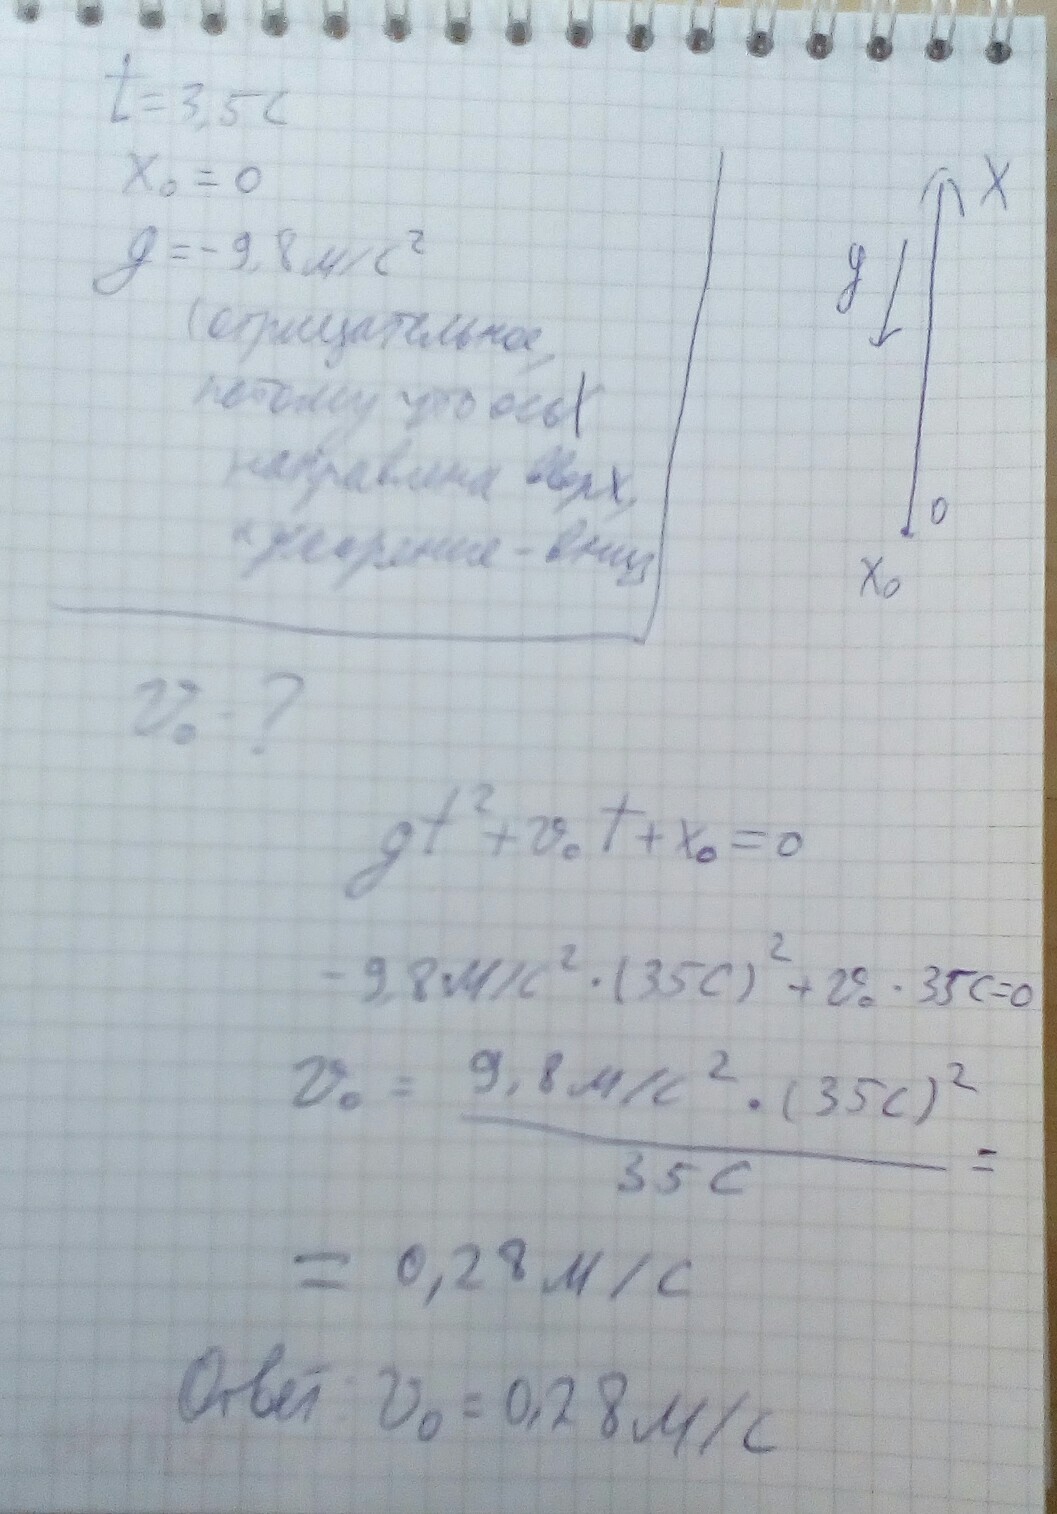 t=3,5с
x₀=0
g=-9,8м/с²
(отрицательное,
потому что ось X
направлена вверх,
ускорение - вниз
X
g
0
x₀
v₀-?
gt²+v₀t+x₀=0
-9,8м/с²·(35с)²+v₀·35с=0
v₀ = 9,8м/с²·(35с)² / 35с =
= 0,28м/с
Ответ: v₀=0,28м/с